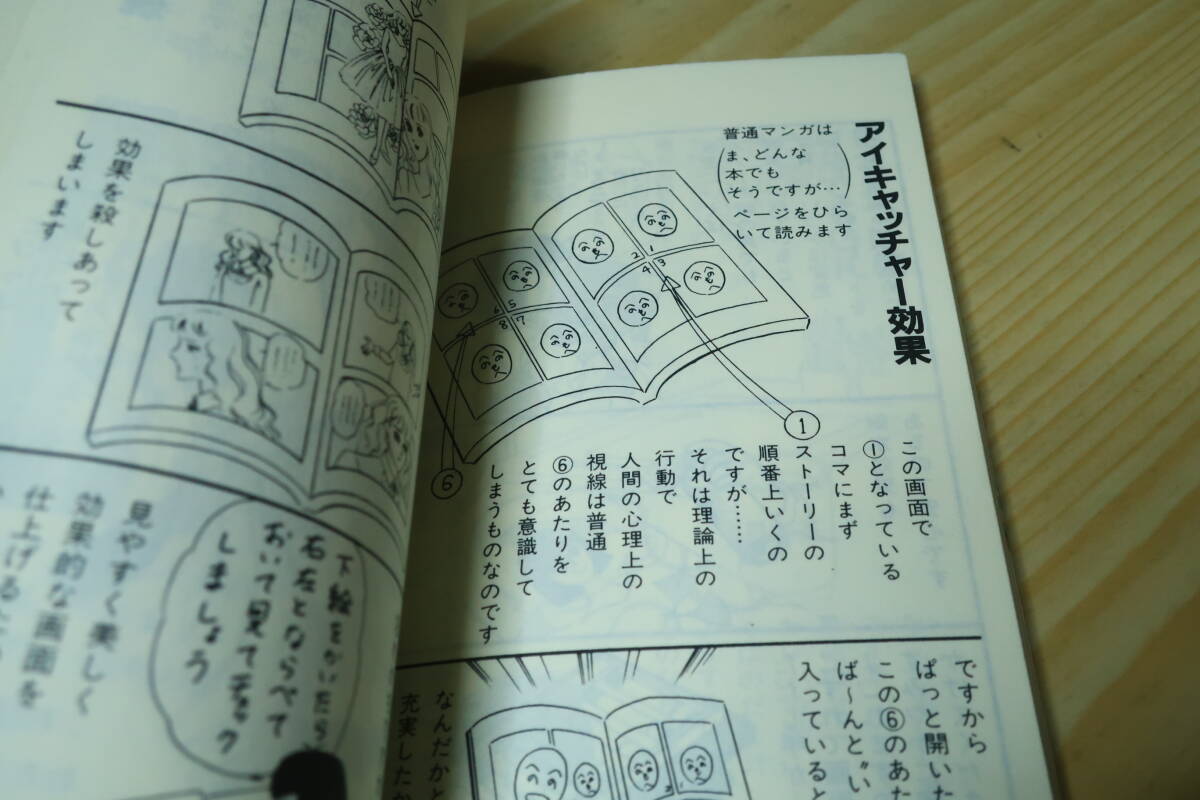 アイキャッチャー効果
普通マンガは
(ま、どんな
本でも
そうですが…)
ページをひら
いて読みます
1
2
3
4
5
6
7
8
①
⑥
この画面で
①となっている
コマにまず
ストーリーの
順番上いくの
ですが……
それは理論上の
行動で
人間の心理上の
視線は普通
⑥のあたりを
とても意識して
しまうものなのです
ですから
ぱっと開いた
この⑥のあた
ば〜んと〝い
入っていると
なんだかと
充実したか
効果を殺しあって
しまいます
下絵をかいたら
右左とならべて
おいて見てチェック
しましょう
見やすく美しく
効果的な画面を
仕上げるた